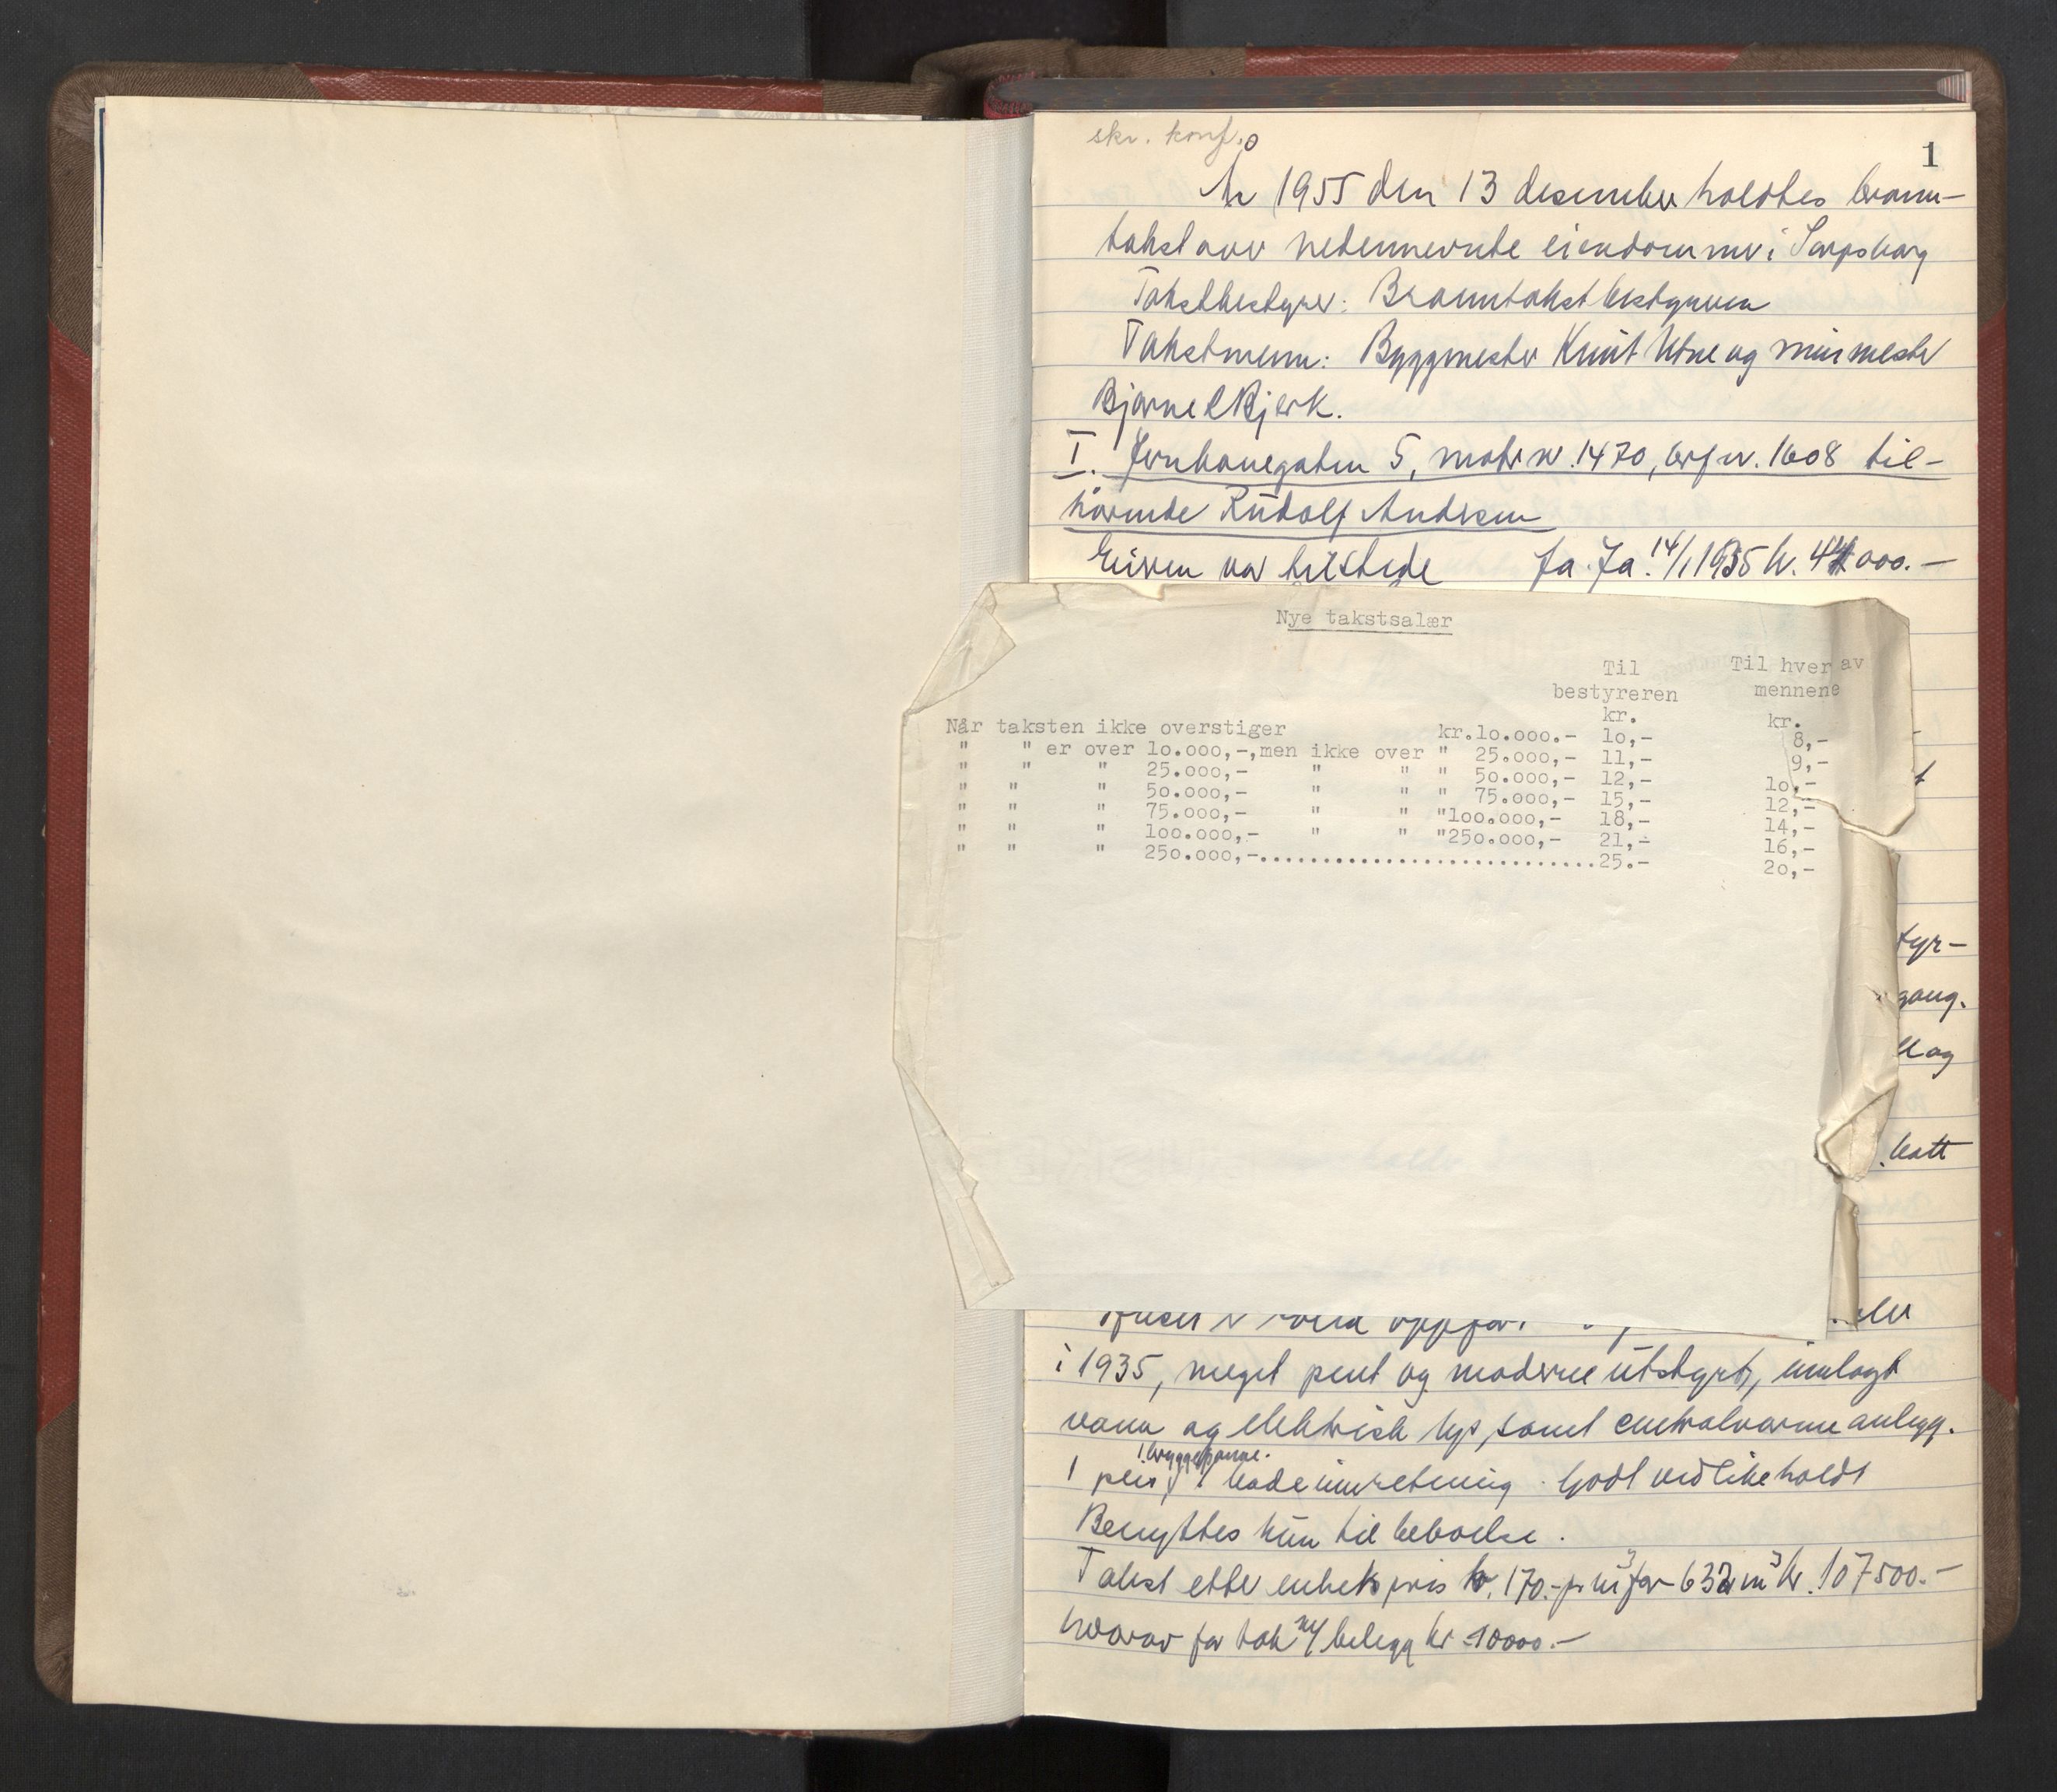 skr. konf.
1
År 1955 den 13 desember holdtes brann-
takst over nedennevnte eiendommer i Sarpsborg
Takstbestyrer: Branntakstbestyreren
Takstmenn: Byggmester Knut Utne og murmester
Bjarne Bjerk.
I. Jernbanegaten 5, matr nr. 1470, brf nr. 1608 til-
hørende Rudolf Andresen
Eieren var tilstede Ja. Ja. 14/1 1935 kr. 44000.-
Nye takstsalær
Til Til hver av
bestyreren mennene
kr. kr.
Når taksten ikke overstiger kr.lo.ooo.- lo,- 8,-
" " er over lo.ooo,-,men ikke over " 25.ooo,- 11,- 9,-
" " " 25.ooo,- " " " 50.ooo,- 12,- lo,-
" " " 50.ooo,- " " " 75.ooo,- 15,- 12,-
" " " 75.ooo,- " " "loo.ooo,- 18,- 14,-
" " " loo.ooo,- " " "250.ooo,- 21,- 16,-
" " " 250.ooo,-............................25.- 20,-
tyr-
gang.
og
katt
Huset
i 1935, meget pent og moderne utstyrt, innlagt
vann og elektrisk lys, samt centralvarmeanlegg.
1 bryggepanne.
1 peis, 1 badeinnretning. Godt vedlikeholdt
Benyttes kun til beboelse.
Takst etter enhetspris kr. 170.- pr m³ for 632 m³ kr. 107500.-
hvorav for tak ny belegg kr 10000.-